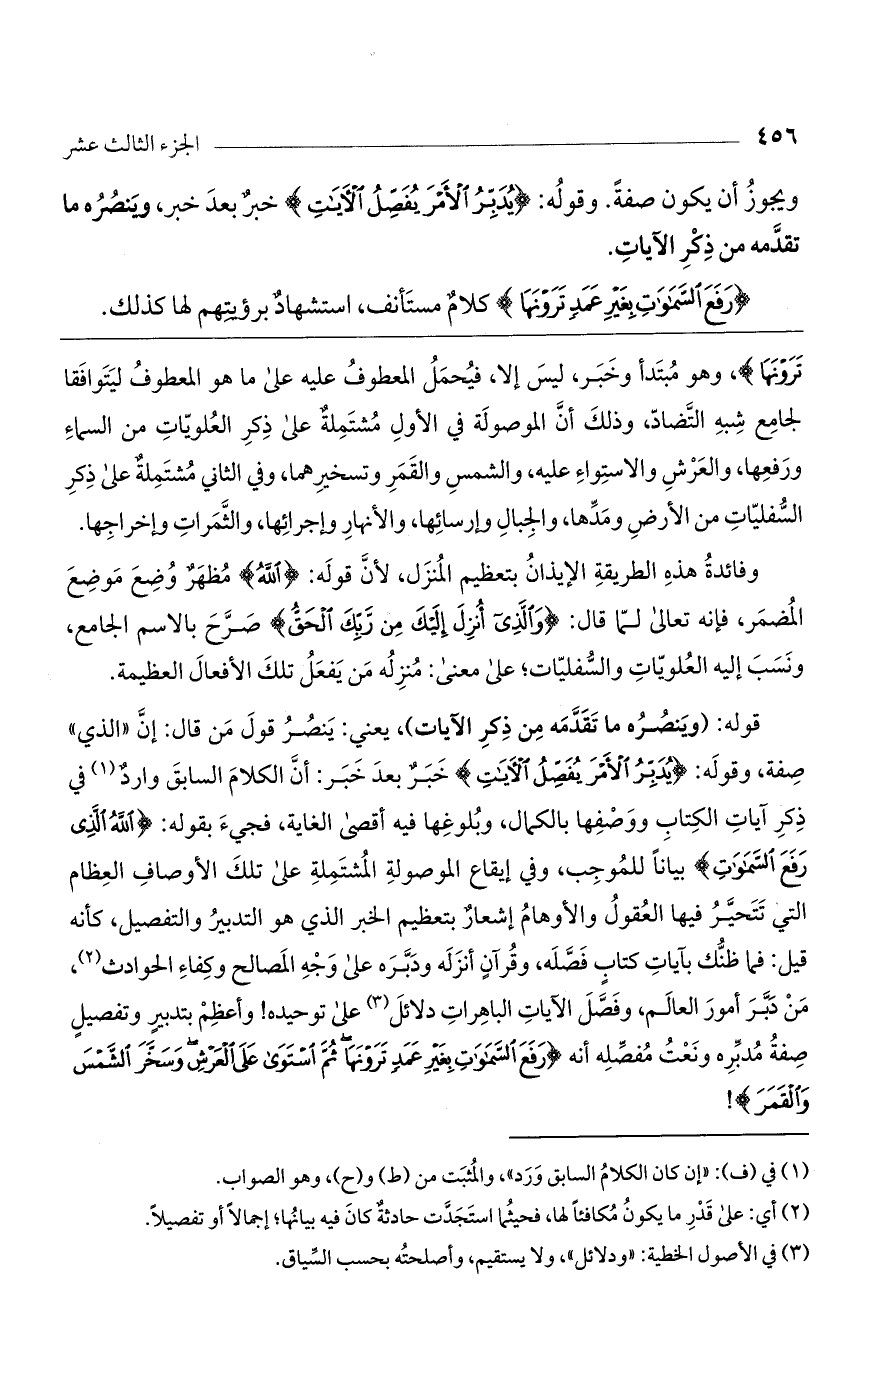 ٤٥٦ الجزء الثالث عشر
ويجوزُ أن يكون صفةً. وقولُه: ﴿يُدَبِّرُ ٱلْأَمْرَ يُفَصِّلُ ٱلْآيَـٰتِ﴾ خبرٌ بعدَ خبر، وينصُرُه ما
تقدَّمه من ذِكْرِ الآياتِ.
﴿رَفَعَ ٱلسَّمَـٰوَٰتِ بِغَيْرِ عَمَدٍ تَرَوْنَهَا﴾ كلامٌ مستَأنف، استشهادٌ برؤيتِهم لها كذلك.
تَرَوْنَهَا﴾، وهو مُبتَدأ وخَبَر، ليسَ إلا، فيُحمَلُ المعطوفُ عليه علىٰ ما هو المعطوفُ ليَتَوافَقا
لجامِعِ شِبهِ التَّضادّ، وذلكَ أنَّ الموصولَة في الأولِ مُشتَمِلةٌ علىٰ ذِكرِ العُلويّاتِ من السماءِ
ورَفعِها، والعَرْشِ والاستِواءِ عليه، والشمسِ والقَمَرِ وتسخيرِهما، وفي الثاني مُشتَمِلةٌ علىٰ ذِكرِ
السُّفليّاتِ من الأرضِ ومَدِّها، والجِبالِ وإرسائِها، والأنهارِ وإجرائِها، والثَّمَراتِ وإخراجِها.
وفائدةُ هذهِ الطريقةِ الإيذانُ بتعظيمِ المُنزَل، لأنَّ قولَه: ﴿ٱللَّهُ﴾ مُظهَرٌ وُضِعَ مَوضِعَ
المُضمَر، فإنه تعالىٰ لـمّا قال: ﴿وَٱلَّذِىٓ أُنزِلَ إِلَيْكَ مِن رَّبِّكَ ٱلْحَقُّ﴾ صَـرَّحَ بالاسمِ الجامع،
ونَسَبَ إليه العُلويّاتِ والسُّفليّات؛ علىٰ معنىٰ: مُنزِلُه مَن يَفعَلُ تلكَ الأفعالَ العظيمة.
قوله: (وينصُـرُه ما تَقَدَّمَه مِن ذِكرِ الآيات)، يعني: يَنصُـرُ قولَ مَن قال: إنَّ «الذي»
صِفة، وقولَه: ﴿يُدَبِّرُ ٱلْأَمْرَ يُفَصِّلُ ٱلْآيَـٰتِ﴾ خَبَرٌ بعدَ خَبَر: أنَّ الكلامَ السابقَ واردٌ(١) في
ذِكرِ آياتِ الكِتابِ ووَصْفِها بالكمال، وبُلوغِها فيه أقصىٰ الغاية، فجيءَ بقوله: ﴿ٱللَّهُ ٱلَّذِى
رَفَعَ ٱلسَّمَـٰوَٰتِ﴾ بياناً للمُوجِب، وفي إيقاعِ الموصولةِ المُشتَمِلةِ علىٰ تلكَ الأوصافِ العِظام
التي تَتَحيَّـرُ فيها العُقولُ والأوهامُ إشعارٌ بتعظيمِ الخبرِ الذي هو التدبيرُ والتفصيل، كأنه
قيل: فما ظنُّك بآياتِ كتابٍ فصَّلَه، وقُرآنٍ أنزَلَه ودَبَّـرَه علىٰ وَجْهِ المَصالحِ وكِفاءِ الحوادث(٢)،
مَنْ دَبَّـرَ أمورَ العالَـم، وفصَّلَ الآياتِ الباهِراتِ دلائلَ(٣) علىٰ توحيدِه! وأعظِمْ بتدبيرٍ وتفصيلٍ
صِفةُ مُدبِّرِه ونَعْتُ مُفصِّلِه أنه ﴿رَفَعَ ٱلسَّمَـٰوَٰتِ بِغَيْرِ عَمَدٍ تَرَوْنَهَا ۖ ثُمَّ ٱسْتَوَىٰ عَلَى ٱلْعَرْشِ ۖ وَسَخَّرَ ٱلشَّمْسَ
وَٱلْقَمَرَ﴾!
(١) في (ف): «إن كان الكلامُ السابق وَرَد»، والمُثبَت من (ط) و(ح)، وهو الصواب.
(٢) أي: علىٰ قَدْرِ ما يكونُ مُكافئاً لها، فحيثُما استَجَدَّت حادثةٌ كانَ فيه بيانُها؛ إجمالاً أو تفصيلاً.
(٣) في الأصول الخطية: «ودلائل»، ولا يستقيم، وأصلحتُه بحسب السِّياق.